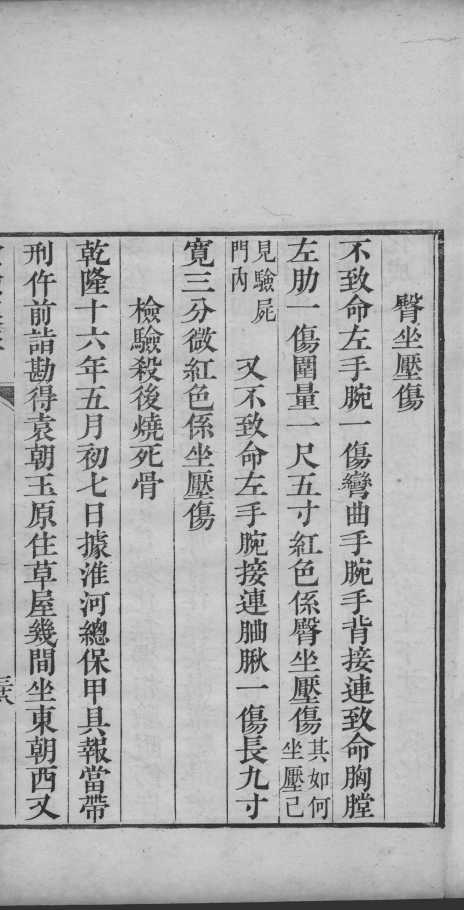 臀坐壓傷
不致命左手腕一傷彎曲手腕手背接連致命胸膛
左肋一傷圍量一尺五寸紅色係臀坐壓傷其如何坐壓已
見驗屍門內 又不致命左手腕接連𦙶脉一傷長九寸
寬三分微紅色係坐壓傷
檢驗殺後燒死骨
乾隆十六年五月初七日據淮河總保甲具報當帶
刑仵前詣勘得袁朝玉原住草屋幾間坐東朝西又